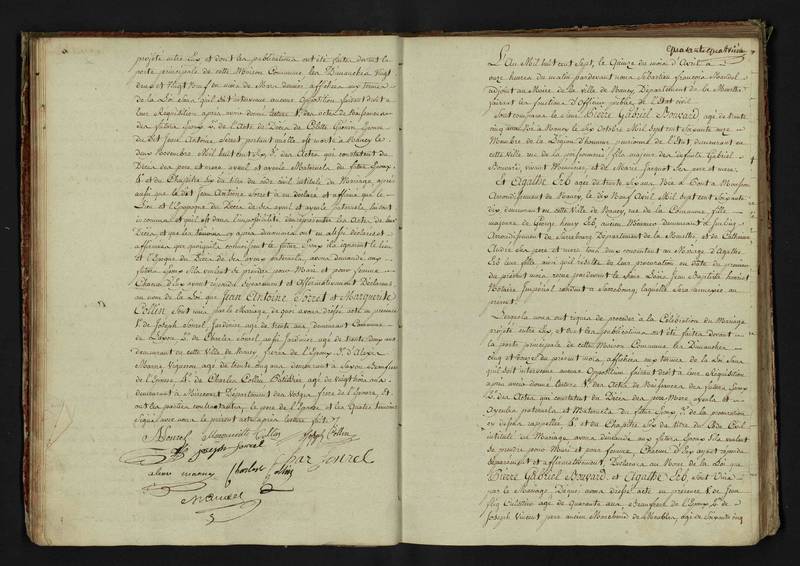 projetté entre Eux et dont les publications ont été faites devant la
porte principale de cette Maison Commune, les Dimanches Vingt
deux et Vingt Neuf du mois de Mars dernier affichées aux termes
de la Loi Sans qu'il soit intervenue aucune Opposition faisant droit à
leur Réquisition après avoir donné lecture 1° des actes de Naissances
des futurs Epoux 2° de l'Acte de Décès de Colette
du dit Jean Antoine portant qu'elle est morte à Nancy le
deux Novembre Mil huit cent Six 3° des Actes qui constatent le
Décès des père et mère, ayeul et ayeule Maternels du futur Epoux
et du Chapitre Six du titre du Code civil intitulé du Mariage, après
aussi que le dit Jean Antoine a déclaré et affirmé que le
Lieu et l'Epoque du Décès de ses ayeul et ayeule Paternels, lui sont
inconnus et qu'il est dans l'impossibilité de représenter les Actes de leur
Décès, et que les témoins ont aussi déclaré et
affirmé que quoiqu'ils connoissent le futur Epoux ils ignorent le lieu
et l'Epoque du Décès de ses ayeux paternels, avons demandé aux
futurs Epoux s'ils veulent se prendre pour Mari et pour femme
Chacun d'Eux ayant répondu séparément et Affirmativement Déclarons
au nom de la Loi que Jean Antoine et Marguerite
Collin sont unis par le Mariage, de quoi avons dressé acte en présence
1° de Joseph Jardinier agé de trente ans demeurant Commune
de 2° de Charles aussi Jardinier agé de trente deux ans
demeurant en cette Ville de Nancy, frères de l'Epoux 3° d'Alexis
Vigneron agé de trente cinq ans demeurant à Saxon Beaufrère
de l'Epouse 4° de Charles Collin agé de vingt huit ans
demeurant à Mirecourt Département des Vosges frère de l'Epouse, Et
ont les parties contractantes, le père de l'Epouse et les quatre témoins
Signé avec nous le présent acte après lecture faite
Marguerite Collin Joseph Collin
joseph
alexis Charles Collin
Mandel
quarante quatrième
L'An Mil huit cent Sept, le Quinze du mois d'Avril à
onze heures du matin pardevant nous Sébastien françois Mandel
adjoint au Maire de la Ville de Nancy Département de la Meurthe
faisant les fonctions d'Officier public de l'Etat civil
Sont comparus le sieur Pierre Gabriel Bouvard agé de trente
cinq ans Né à Nancy le Six Octobre Mil Sept cent Soixante onze
Membre de la Légion d'honneur pensionné de l'Etat, demeurant en
cette Ville rue de la fils majeur des défunts Gabriel
Bouvard, vivant et de Marie Jacquot Ses père et mere.
Et Agathe Erb agée de trente Six ans Née à Pont à Mousson
Arrondissement de Nancy, le dix Neuf Avril Mil Sept cent Soixante
dix demeurant en cette Ville de Nancy, rue de la Commune, fille
majeure de George henry Erb, ancien demeurant à
Arrondissement de Sarrebourg Département de la Meurthe, et de Catherine
Ses père et mere tous deux consentant au Mariage d'Agathe
Erb leur fille ainsi qu'il résulte de leur procuration en date du premier
du présent mois, reçue pardevant le Sieur Louis Jean Baptiste
Notaire Impérial résident à Sarrebourg, laquelle sera annexée au
présent.
Lesquels nous ont requis de procéder à la Célébration du Mariage
projetté entre Eux, et dont les publications ont été faites devant
la porte principale de cette Maison Commune les Dimanches
cinq et douze du présent mois, affichées aux termes de la Loi Sans
qu'il soit intervenue aucune Opposition faisant droit à leur Réquisition
après avoir donné lecture 1° des Actes de Naissances des futurs Epoux
2° des Actes qui constatent le Décès des père Mere Ayeuls et
Ayeules paternels et Maternels du futur Epoux 3° de la procuration
cy dessus rappellée 4° et du Chapitre Six du titre du Code Civil
intitulé du Mariage, avons demandé aux futurs Epoux s'ils veulent
se prendre pour Mari et pour femme, Chacun d'Eux ayant répondu
séparement et affirmativement Déclarons au Nom de la Loi que
Pierre Gabriel Bouvard et Agathe Erb, sont Unis
par le Mariage, De quoi avons dressé acte en présence 1° de Jean
agé de Quarante ans, Beaufrere de l'Epoux 2° de
Joseph Vincent pere ancien Marchand de Meubles, agé de Soixante cinq